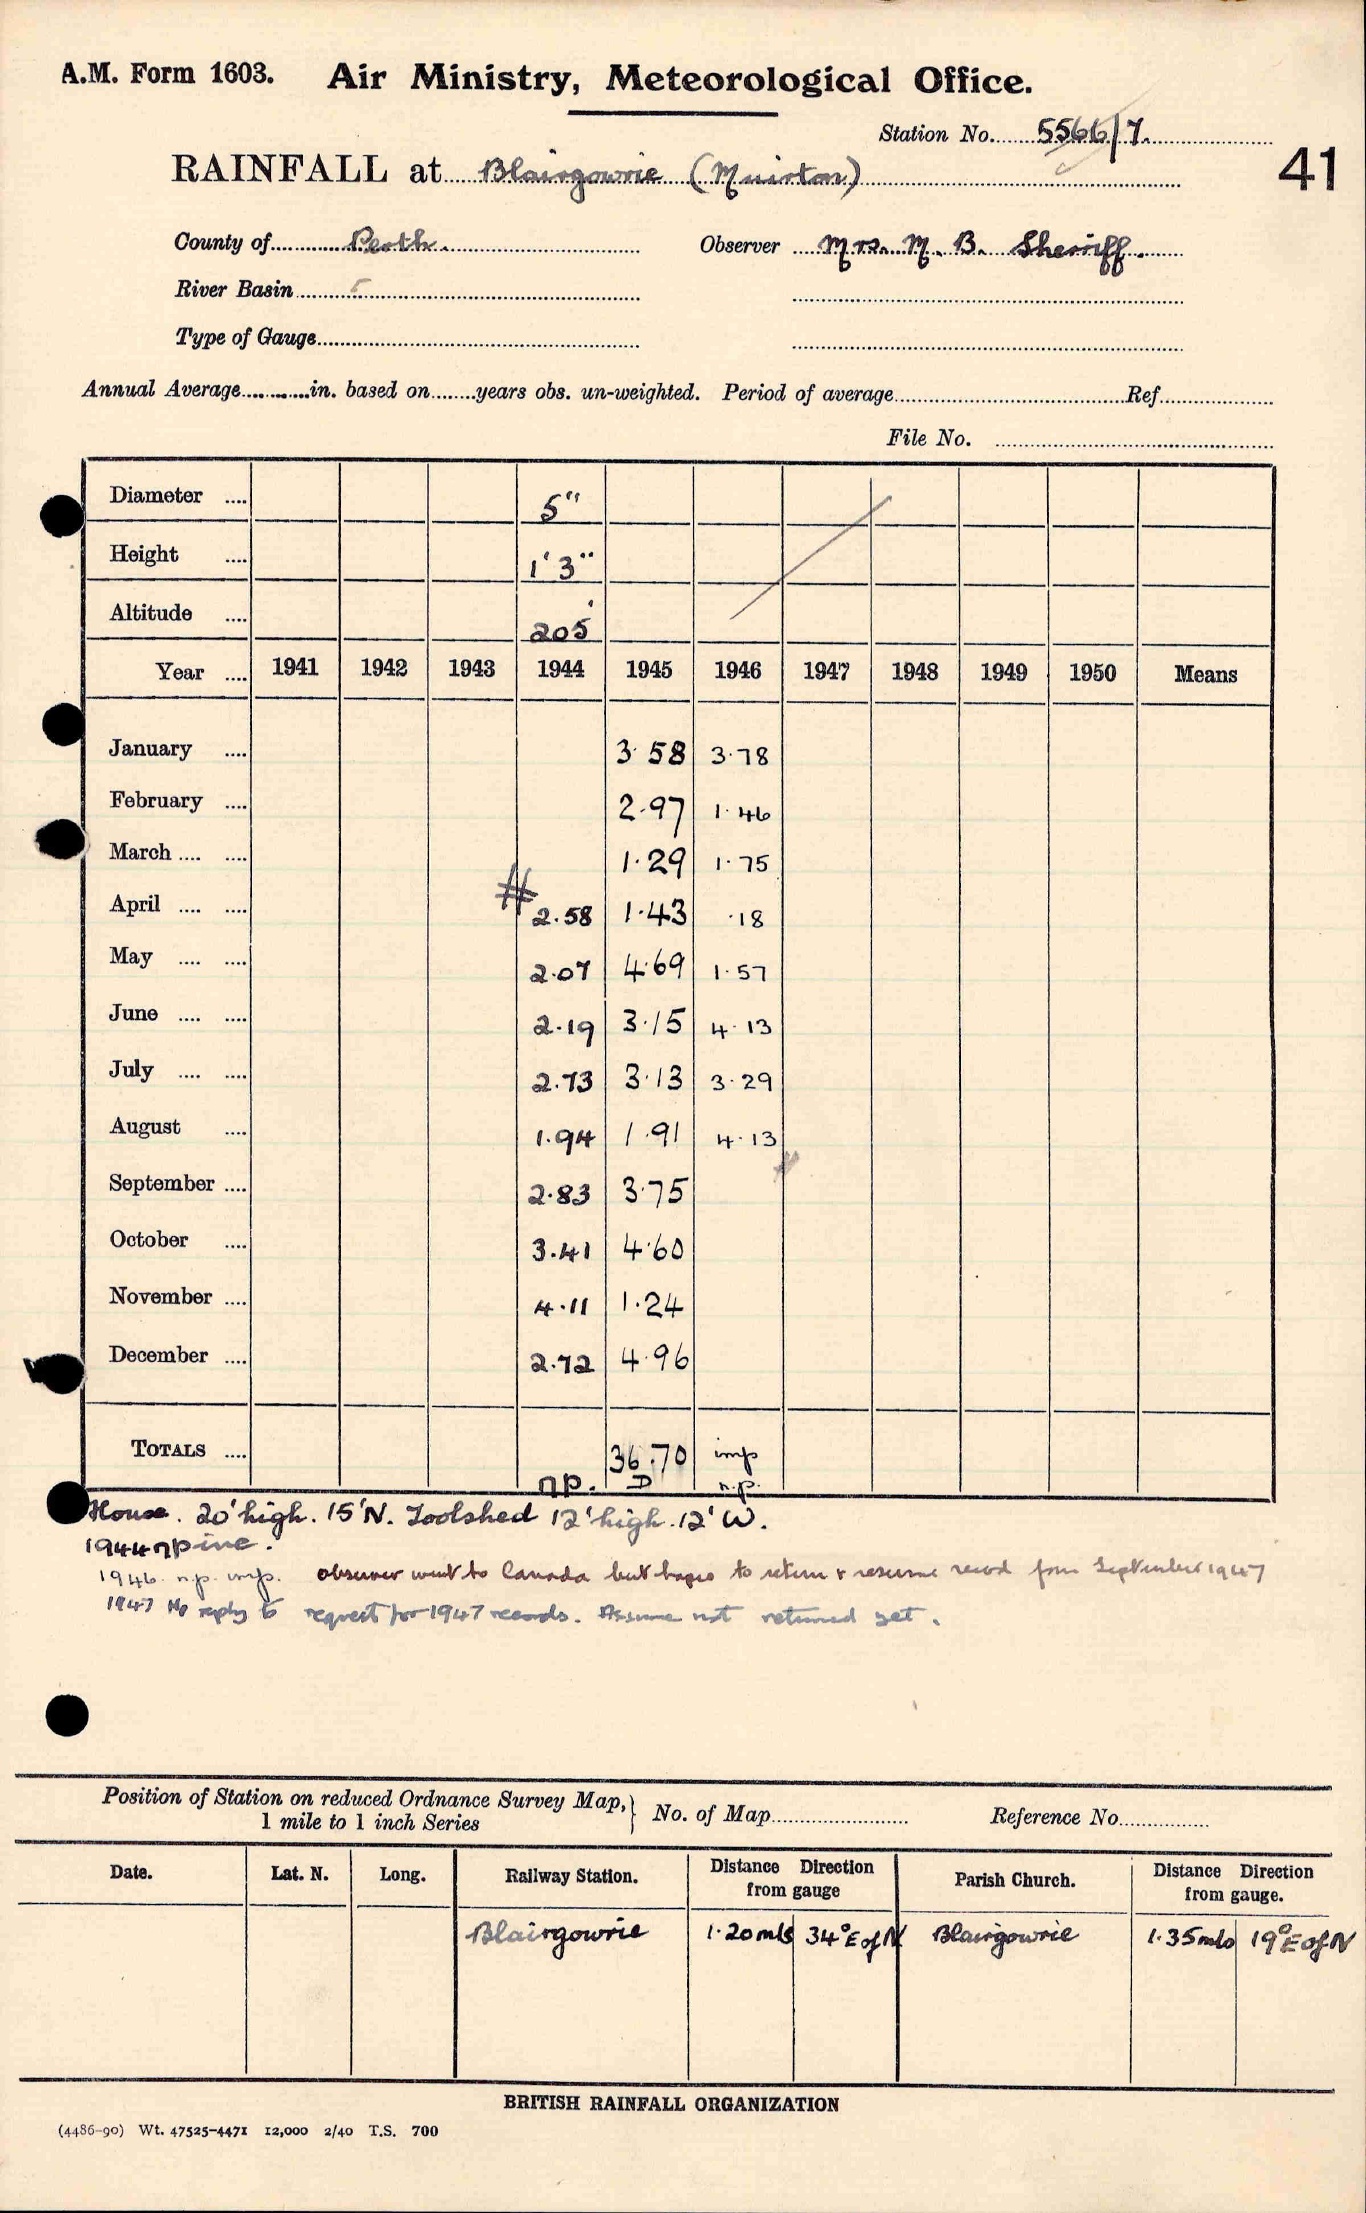 A.M. Form 1603. Air Ministry, Meteorological Office.
Station No. 5566/7.
41
RAINFALL at Blairgowrie (Muirton)
County of Perth. Observer Mrs. M. B. Sherriff.
River Basin
Type of Gauge
Annual Average in. based on years obs. un-weighted. Period of average Ref.
File No.
Diameter 5"
Height 1' 3"
Altitude 205'
Year 1941 1942 1943 1944 1945 1946 1947 1948 1949 1950 Means
January 3.58 3.78
February 2.97 1.46
March 1.29 1.75
April 2.58 1.43 .18
May 2.07 4.69 1.57
June 2.19 3.15 4.13
July 2.73 3.13 3.29
August 1.94 1.91 4.13
September 2.83 3.75
October 3.41 4.60
November 4.11 1.24
December 2.72 4.96
TOTALS 36.70 imp
np. D n.p.
House. 20' high. 15' N. Toolshed 12' high. 12' W.
1944 np inc.
1946 n.p. imp. observer went to Canada but hopes to return & resume record from September 1947
1947 No reply to request for 1947 records. Assume not returned yet.
Position of Station on reduced Ordnance Survey Map, 1 mile to 1 inch Series } No. of Map Reference No.
Date. Lat. N. Long. Railway Station. Distance Direction from gauge Parish Church. Distance Direction from gauge.
Blairgowrie 1.20 mls 34° E of N Blairgowrie 1.35 mls 19° E of N
BRITISH RAINFALL ORGANIZATION
(4486-90) Wt. 47525-4471 12,000 2/40 T.S. 700